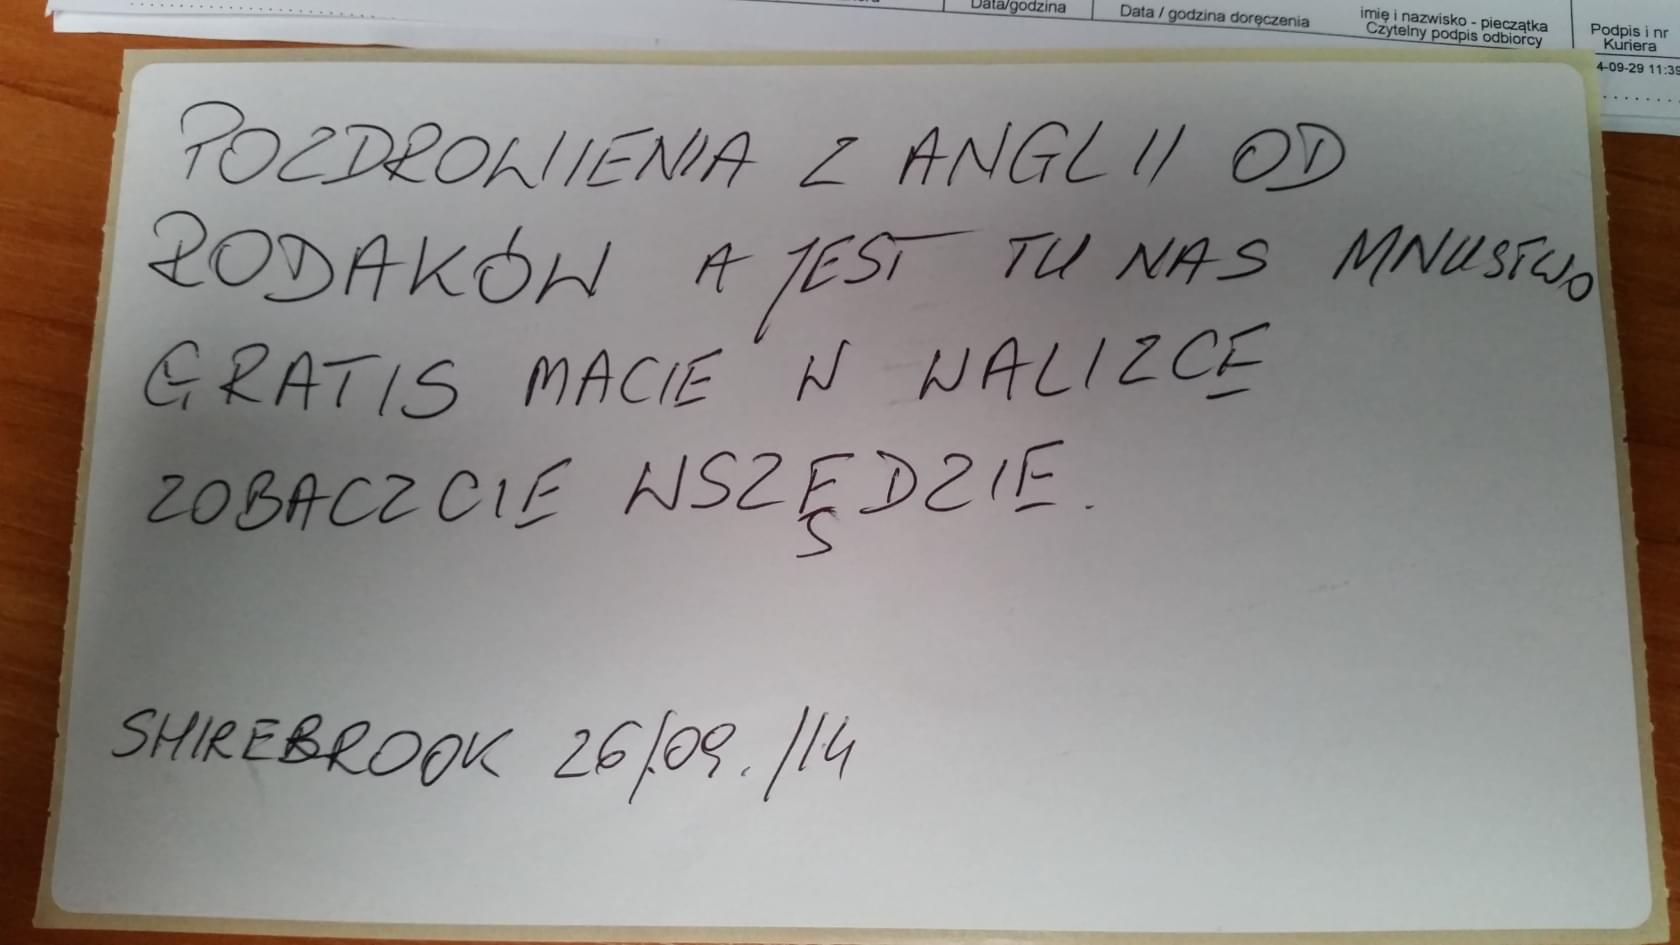 Data/godzina
Data / godzina doręczenia
imię i nazwisko - pieczątka
Czytelny podpis odbiorcy
Podpis i nr
Kuriera
4-09-29 11:39
POZDROWIENIA Z ANGLII OD
RODAKÓW A JEST TU NAS MNUSTWO
GRATIS MACIE W WALIZCE
ZOBACZCIE WSZĘDZIE.
SHIREBROOK 26/.09./14